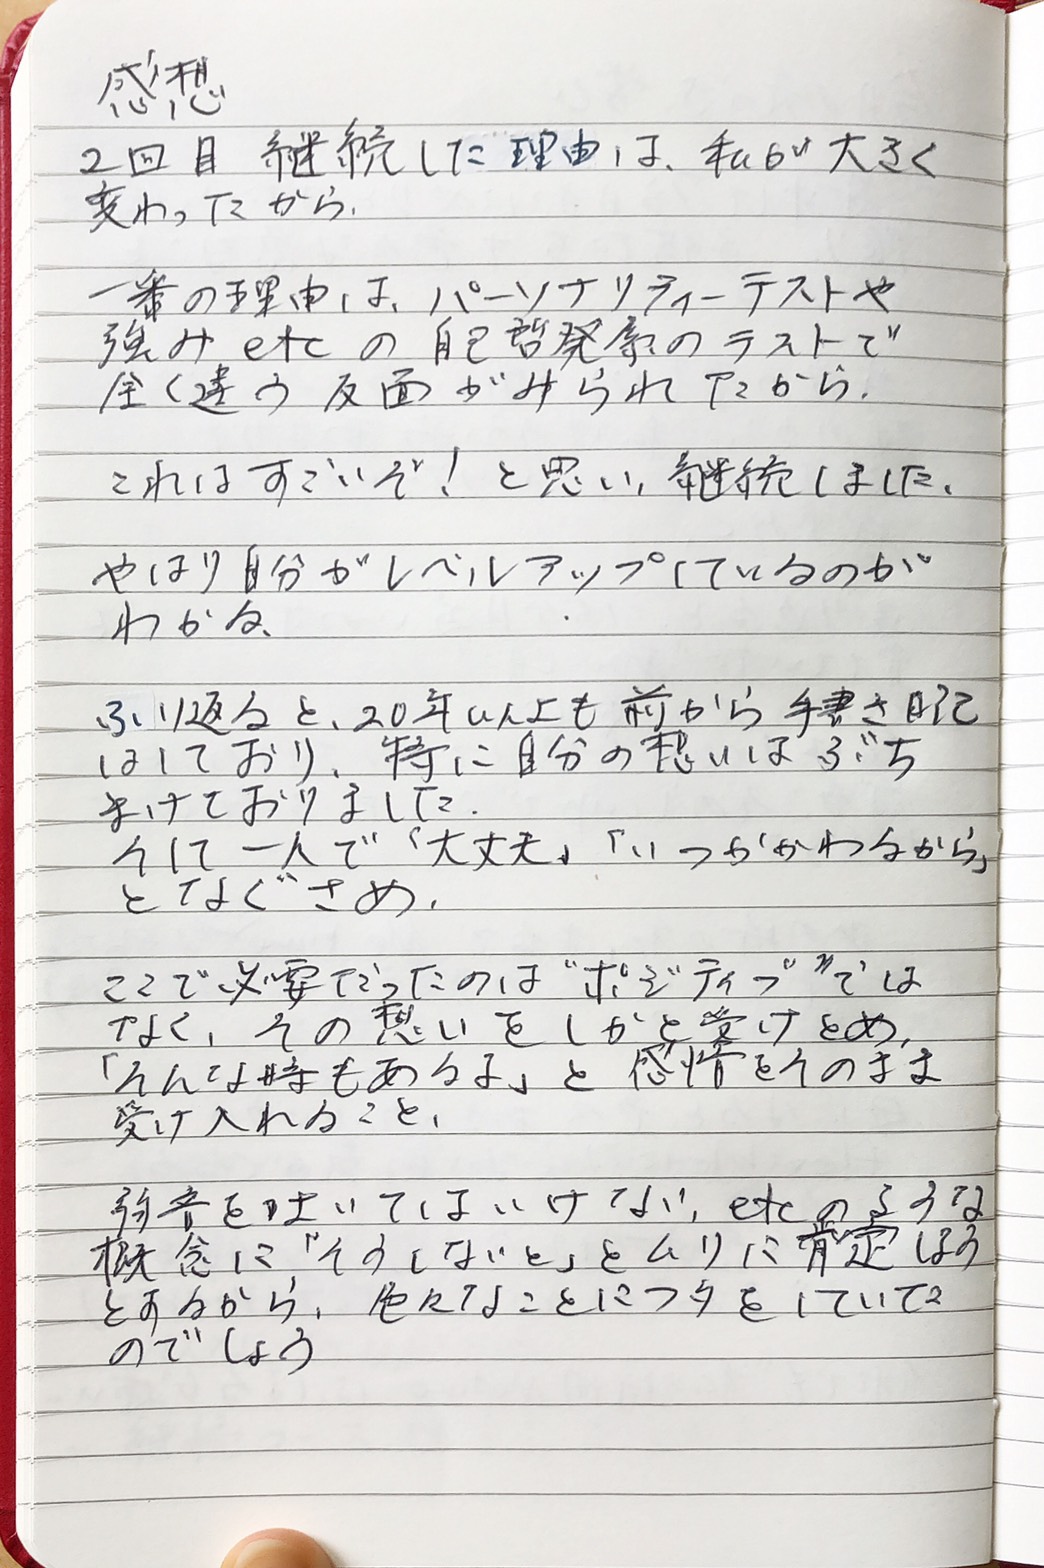 感想
2回目 継続した理由は、私が大きく
変わったから.
一番の理由は、パーソナリティーテストや
強み etc の 自己啓発系のテストで
全く違う 反面がみられたから.
これはすごいぞ! と思い、継続しました.
やはり自分がレベルアップしているのが
わかる、
ふり返ると、20年以上も前から手書き日記
はしており、特に自分の想いはぶち
まけておりました.
そして一人で「大丈夫」「いつかかわるから」
となぐさめ、
ここで必要だったのは“ポジティブ”では
なく、その想いをしかと受けとめ、
「そんな時もあるよ」と感情をそのまま
受け入れること、
弱音を吐いてはいけない、etcのような
概念に「そうしないと」とムリに肯定しよう
とするから、色々なことにフタをしていた
のでしょう